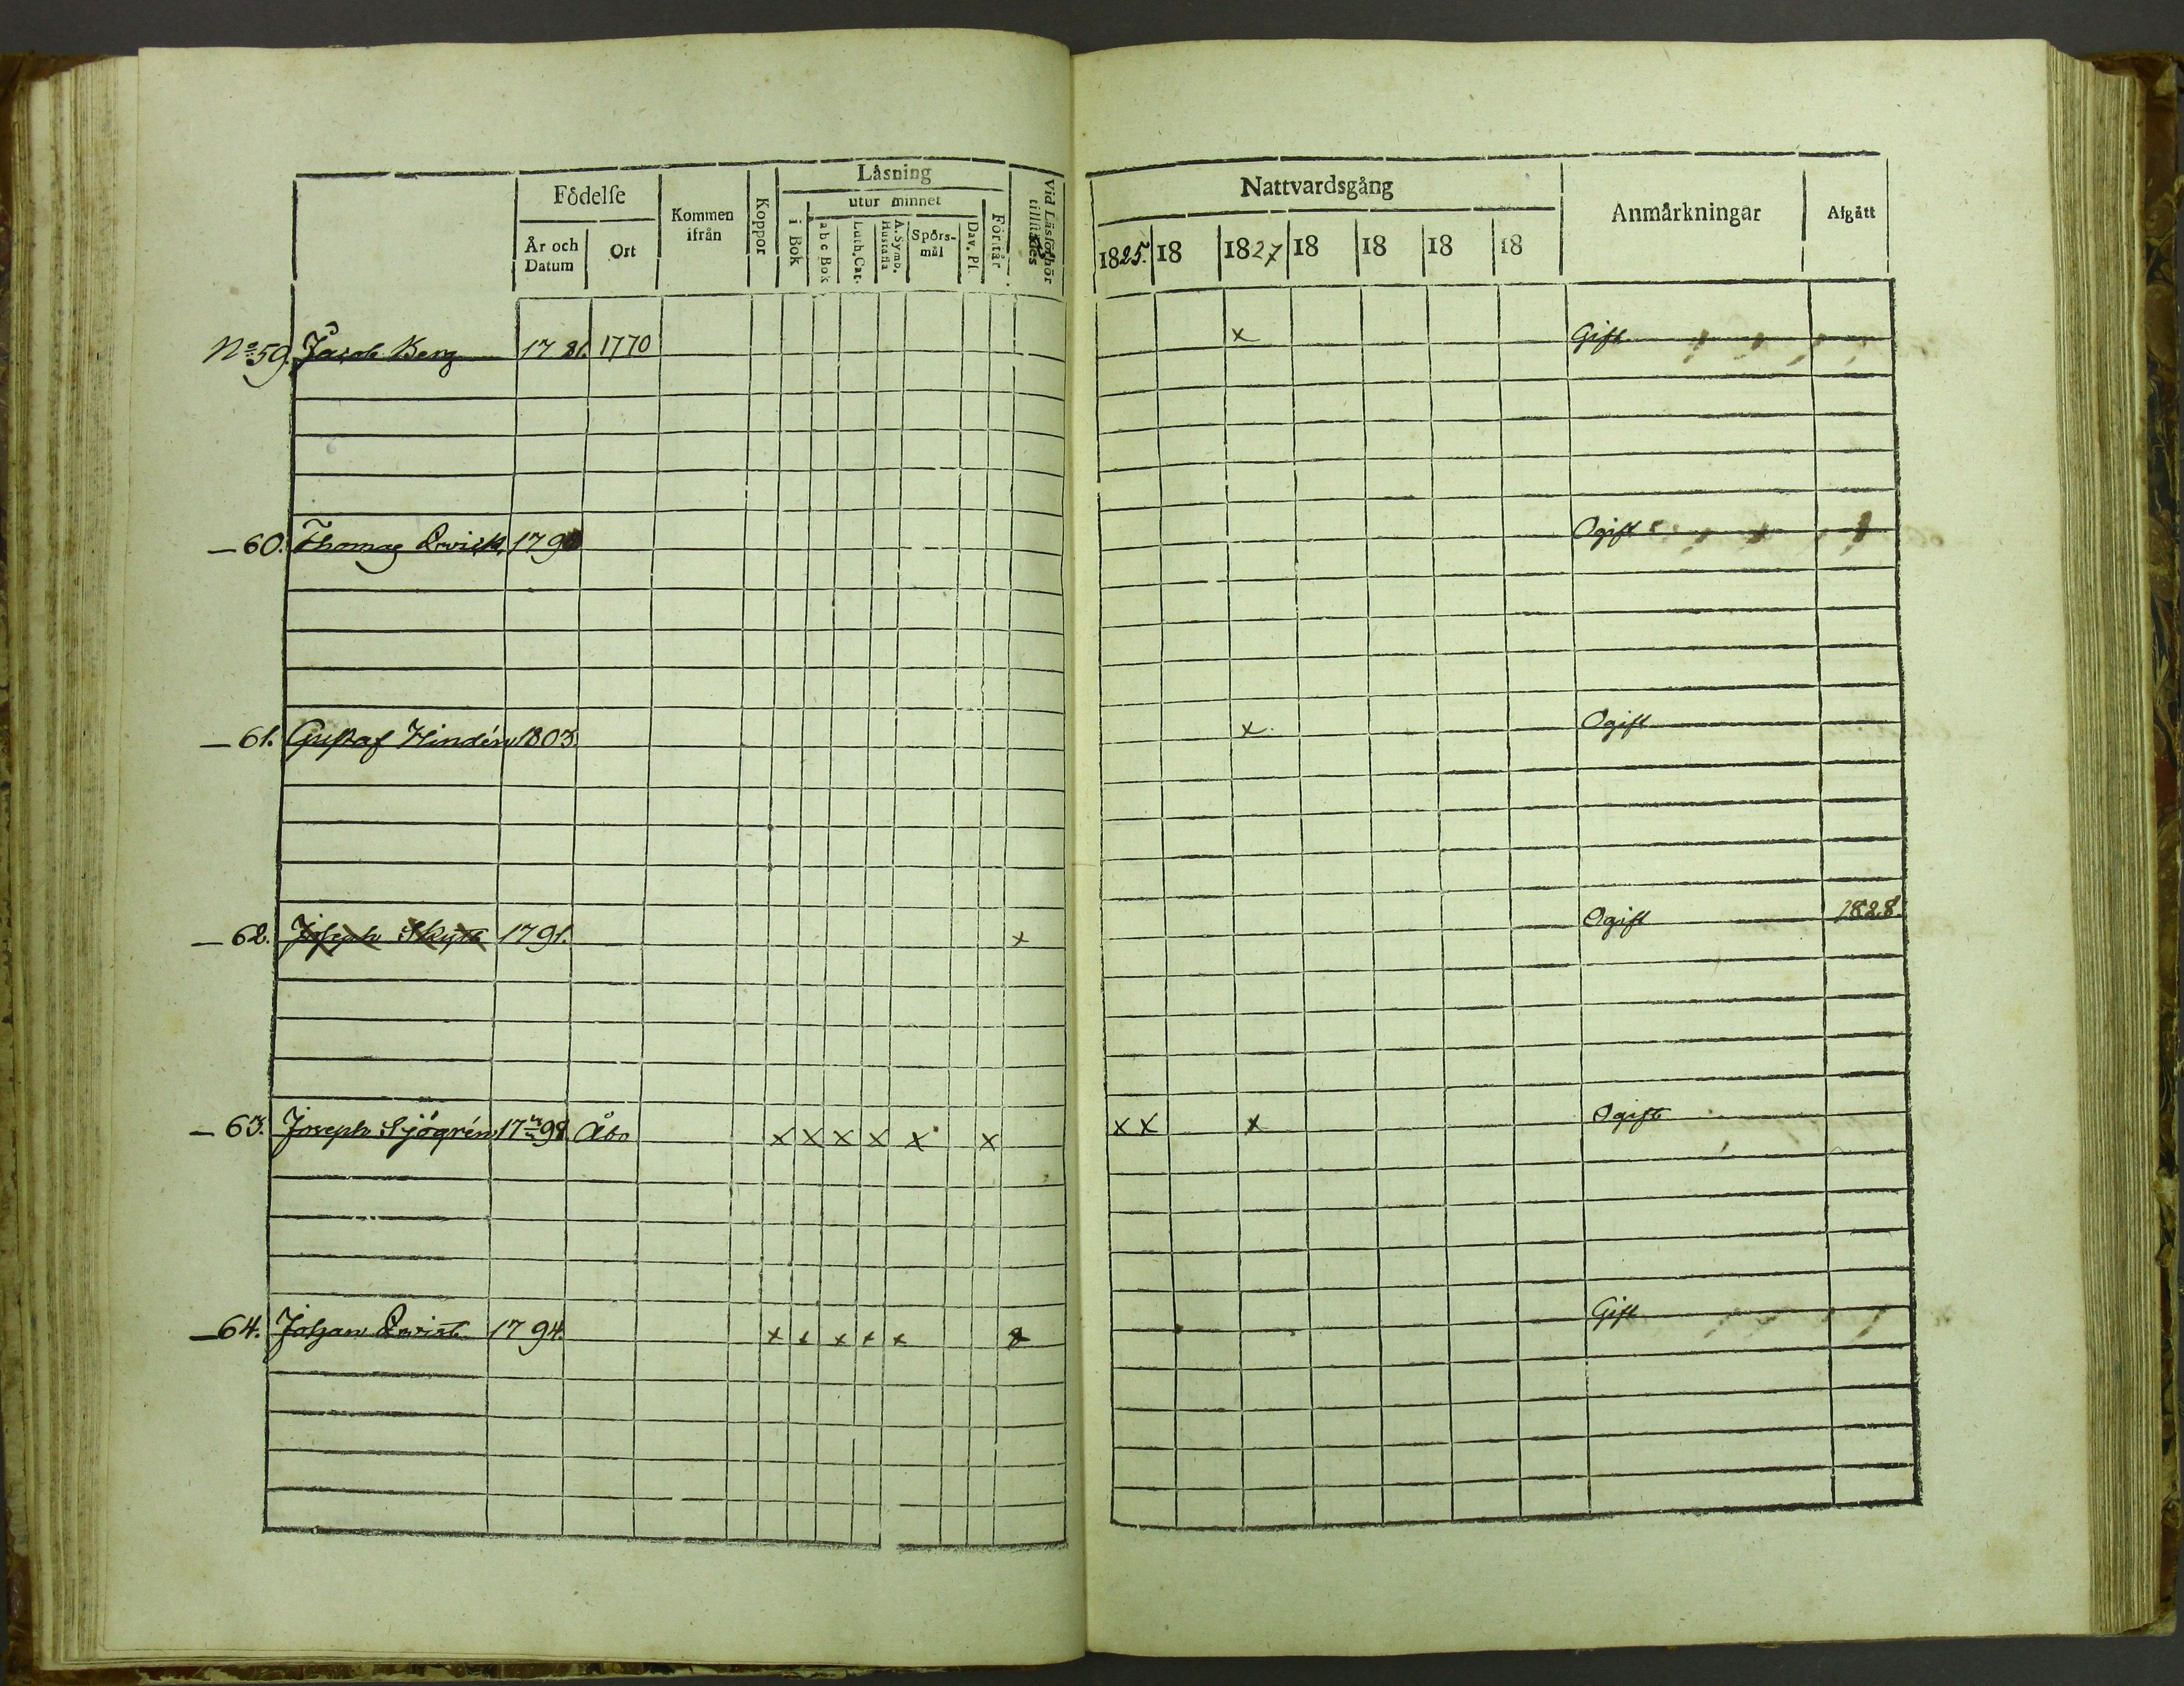 Födelse
Kommen ifrån
Koppor
Läsning
utur minnet
År och Datum
Ort
i Bok
a b c Bok
Luth. Cat.
A. Symb. Hustafla
Spörs-mål
Dav. Ps.
Förstår
Vid Läsförhör tillstädes
Nattvardsgång
Anmärkningar
Afgått
1825. 18 1827 18 18 18 18
No 59. Jacob Berg 1781. 1770 x Gift
— 60. Thomas Qwick, 179 Ogift
— 61. Gustaf Hindén 1803. x. Ogift
— 62. Joseph Skytt 1791. x Ogift 1828.
— 63. Joseph Sjögrén 17 98 Åbo x x x x x x x x x Ogift
— 64. Johan Qwist 1794. x x x x x x Gift